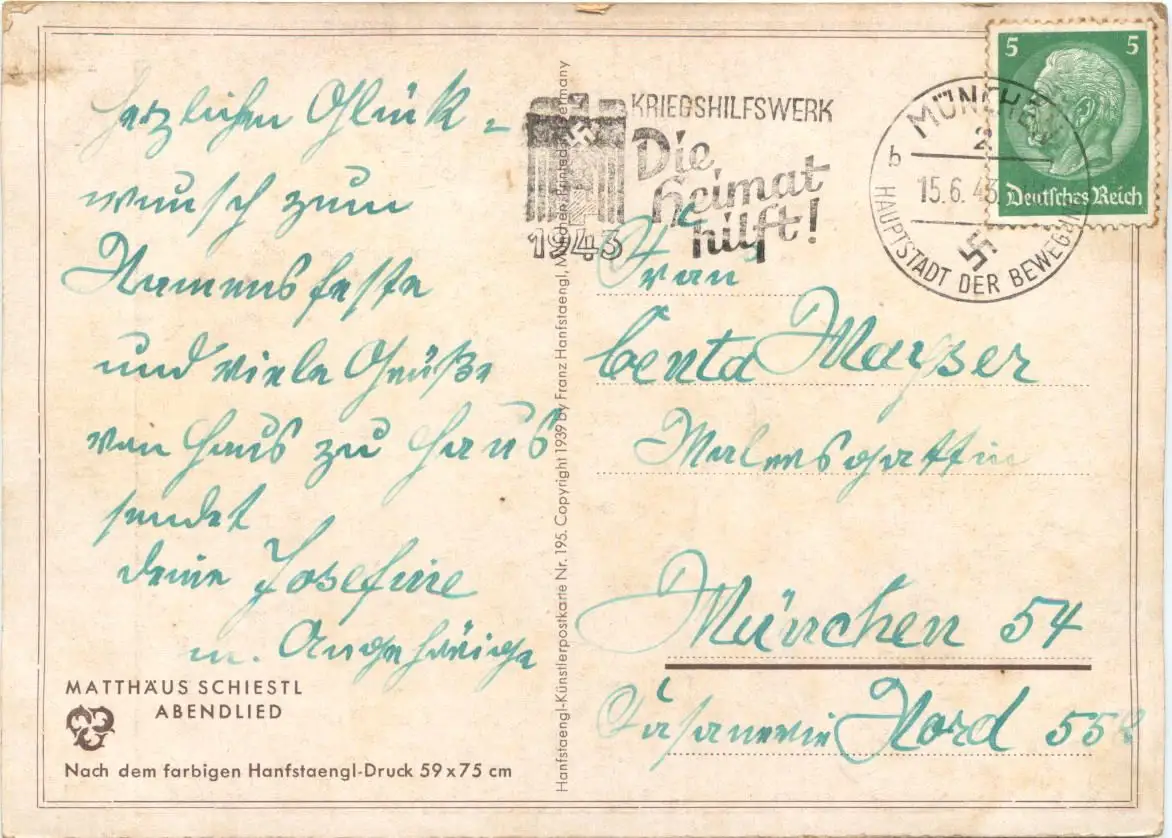 herzlichen Glück-
wunsch zum
Namensfeste
und viele Grüße
von Haus zu Haus
sendet
deine Josefine
u. Angehörige
MATTHÄUS SCHIESTL
ABENDLIED
Nach dem farbigen Hanfstaengl-Druck 59 x 75 cm
Hanfstaengl-Künstlerpostkarte Nr. 195. Copyright 1939 by Franz Hanfstaengl, München. Printed in Germany
1943
KRIEGSHILFSWERK
Die
Heimat
hilft!
MÜNCHEN
2
b
15.6.43.
HAUPTSTADT DER BEWEGUNG
5 5
Deutsches Reich
Frau
Centa Mayser
Malersgattin
München 54
Fasanerie Nord 552